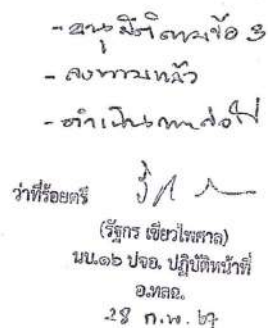 - อนุมัติตามข้อ 3
- ลงนามแล้ว
- ดำเนินการต่อไป
ว่าที่ร้อยตรี
(รัฐกร เขียวไพศาล)
นบ.๑๖ ปจอ. ปฏิบัติหน้าที่
อ.ทลฉ.
28 ก.พ. 67